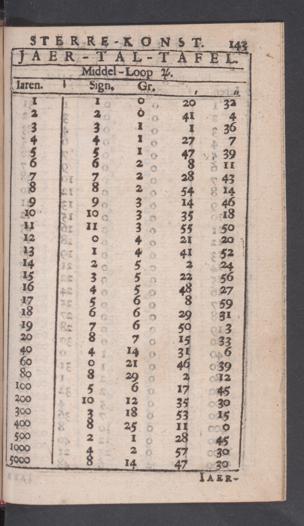 STERRE-KONST. 143
JAER-TAL-TAFEL.
Middel-Loop ♃.
Iaren. Sign. Gr. , ,,
1 1 0 20 32
2 2 0 41 4
3 3 1 1 36
4 4 1 27 7
5 5 1 47 39
6 6 2 8 11
7 7 2 28 43
8 8 2 54 14
9 9 3 14 46
10 10 3 35 18
11 11 3 55 50
12 0 4 21 20
13 1 4 41 52
14 2 5 2 24
15 3 5 22 56
16 4 5 48 27
17 5 6 8 59
18 6 6 29 31
19 7 6 50 3
20 8 7 15 33
40 4 14 31 6
60 0 21 46 39
80 8 29 2 12
100 5 6 17 45
200 10 12 35 30
300 3 18 53 15
400 8 25 11 0
500 2 1 28 45
1000 4 2 57 30
5000 8 14 47 30
IAER-